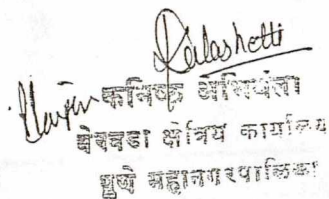 कनिष्ठ अभियंता
येरवडा क्षेत्रिय कार्यालय
पुणे महानगरपालिका